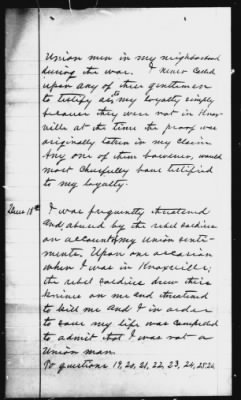 Union men in my neighborhood
during the war. I never called
upon any of these gentlemen
to testify as to my loyalty simply
because they were not in Knox-
ville at the time the proof was
originally taken in my claim
Any one of them however, would
most cheerfully have testified
to my loyalty.
18th I was frequently threatened
and abused by the rebel soldiers
on account of my Union senti-
ments. Upon one occasion
when I was in Knoxville;
the rebel soldiers drew their
knives on me and threatened
to kill me and I in order
to save my life was compelled
to admit that I was not a
Union man.
To questions 19, 20, 21, 22, 23, 24, 25 26